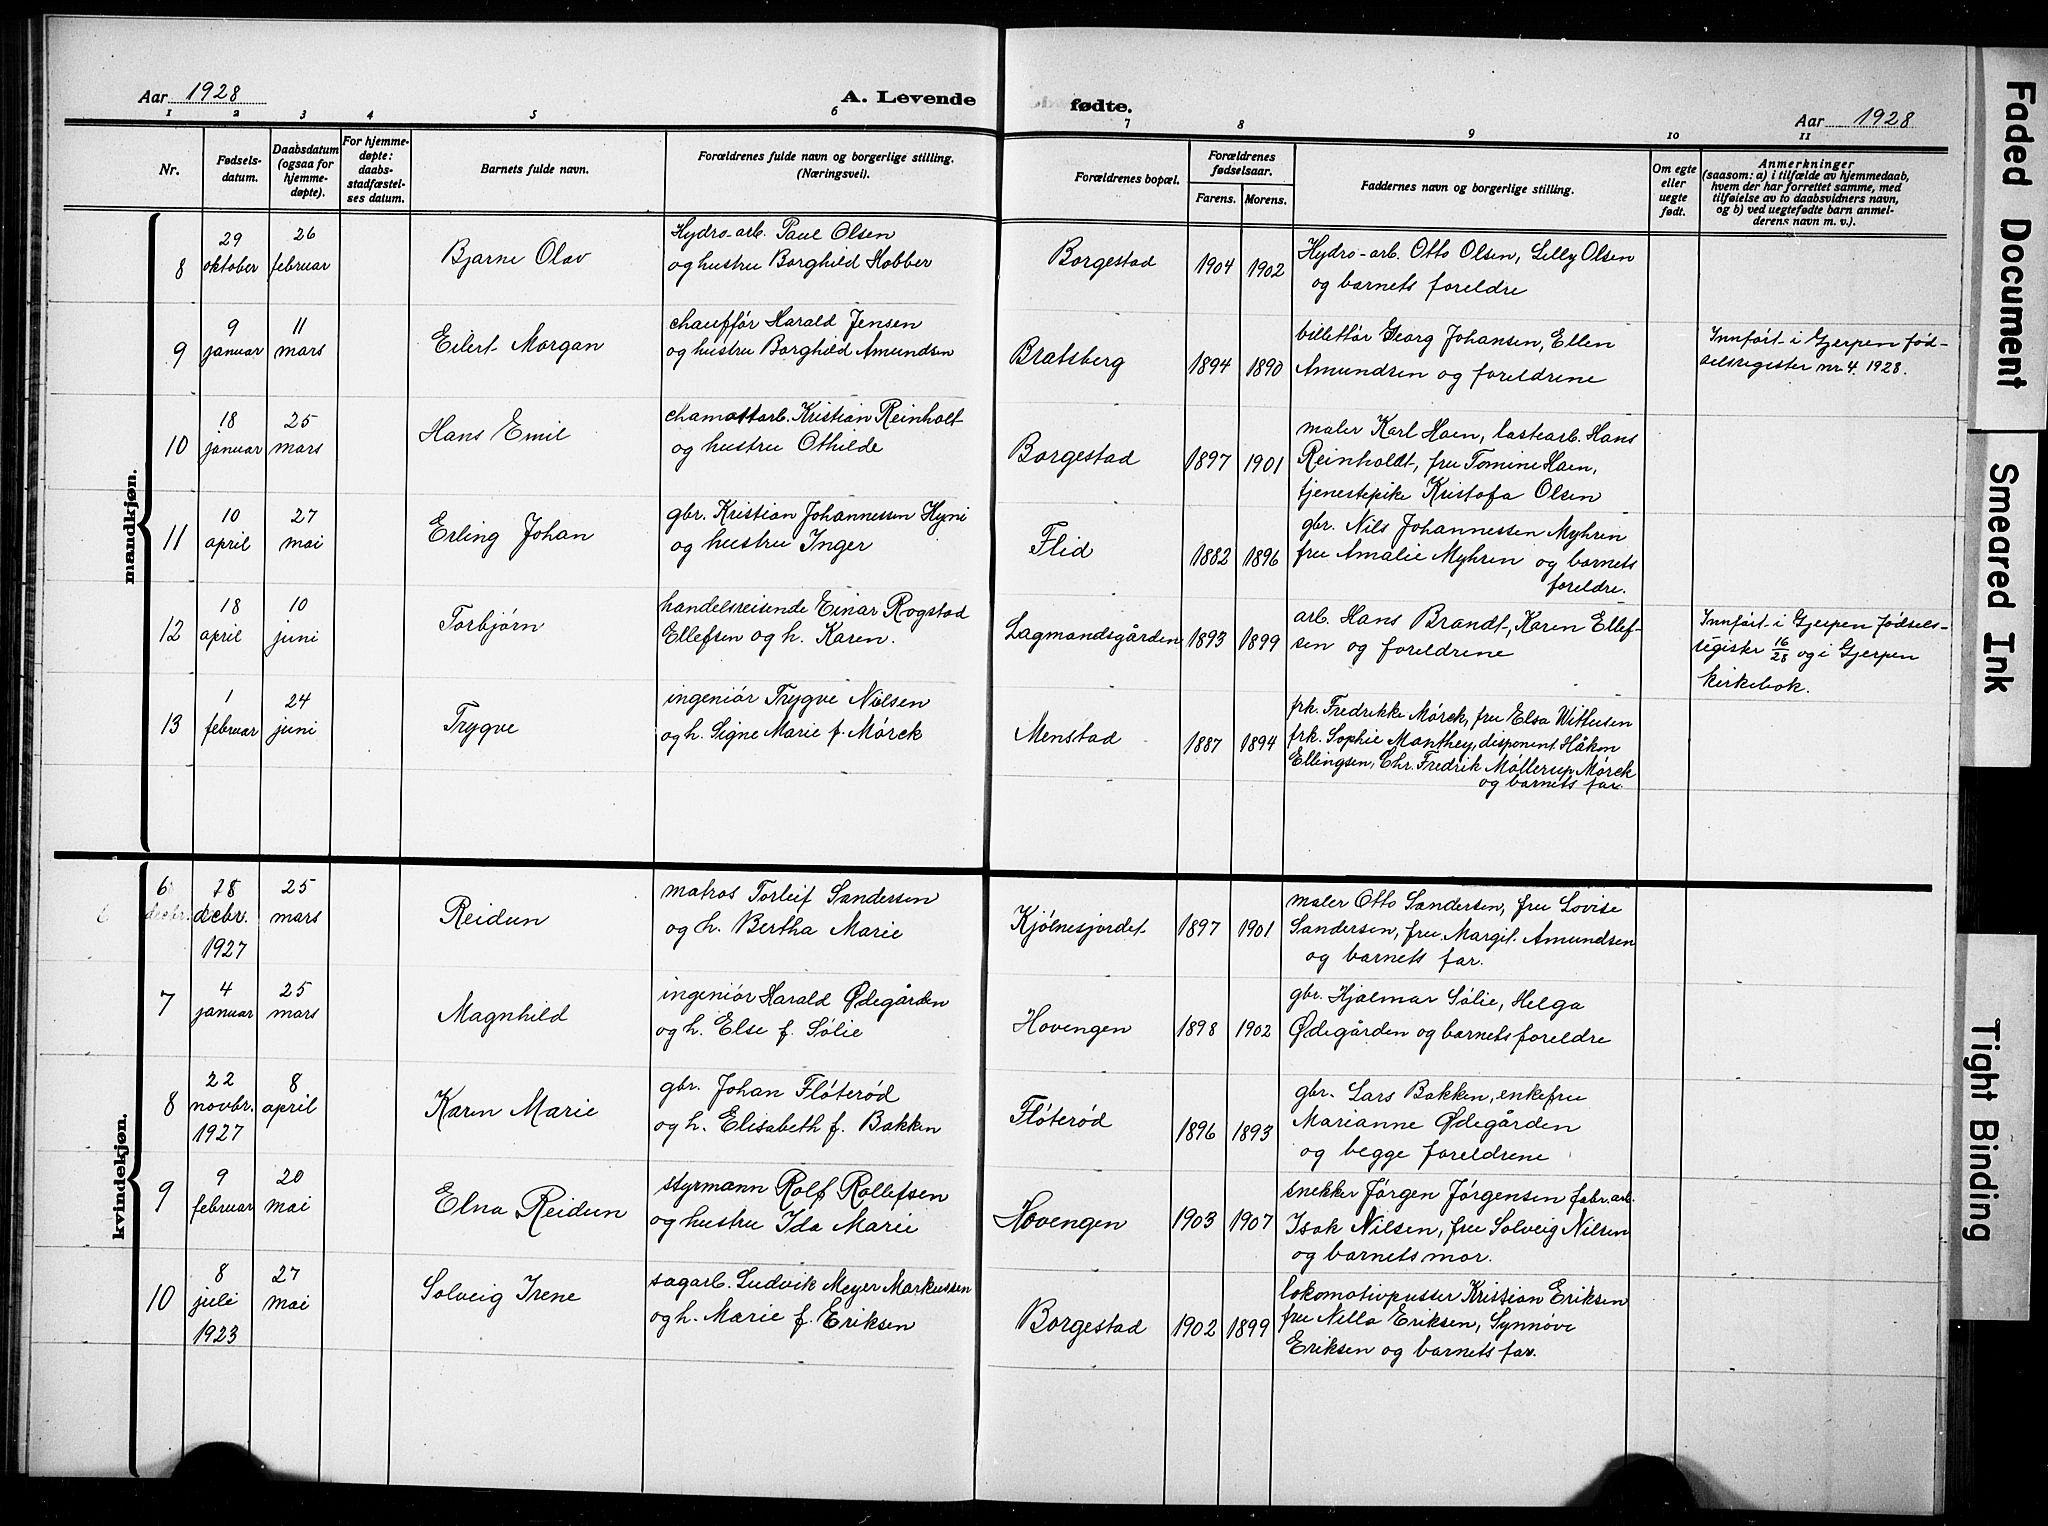 Aar 1928
A. Levende
fødte.
Aar 1928
1 2 3 4 5 6 7 8 9 10 11
Nr.
Fødsels-
datum.
Daabsdatum
(ogsaa for
hjemme-
døpte).
For hjemme-
døpte:
daabs-
stadfæstel-
ses datum.
Barnets fulde navn.
Forældrenes fulde navn og borgerlige stilling.
(Næringsvei).
Forældrenes bopæl.
Forældrenes
fødselsaar.
Farens. Morens.
Faddernes navn og borgerlige stilling.
Om egte
eller
uegte
født.
Anmerkninger
(saasom: a) i tilfælde av hjemmedaab,
hvem der har forrettet samme, med
tilføielse av to daabsvidners navn,
og b) ved uegtefødte barn anmel-
derens navn m. v.).
mandkjøn.
8
29
oktober
26
februar
Bjarne Olav
Hydro-arb. Paul Olsen
og hustru Borghild Hobber
Borgestad
1904 1902
Hydro-arb. Otto Olsen, Lilly Olsen
og barnets foreldre
9
9
januar
11
mars
Eilert Morgan
chauffør Harald Jensen
og hustru Borghild Amundsen
Bratsberg
1894 1890
billettør Georg Johansen, Ellen
Amundsen og foreldrene
Innført i Gjerpen fød-
selsregister nr 4. 1928.
10
18
januar
25
mars
Hans Emil
chamottarb. Kristian Reinholt
og hustru Othilde
Borgestad
1897 1901
maler Karl Hoen, lastearb. Hans
Reinholdt, fru Tomine Hoen,
tjenestepike Kristofa Olsen
11
10
april
27
mai
Erling Johan
gbr. Kristian Johannessen Hyni
og hustru Inger
Flid
1882 1896
gbr. Nils Johannessen Myhren
fru Amalie Myhren og barnets
foreldre.
12
18
april
10
juni
Torbjørn
handelsreisende Einar Rogstad
Ellefsen og h. Karen.
Lagmandsgården
1893 1899
arb. Hans Brandt, Karen Ellef-
sen og foreldrene
Innført i Gjerpen fødsels-
register 16/28 og i Gjerpen
kirkebok.
13
1
februar
24
juni
Trygve
ingeniør Trygve Nielsen
og h. Signe Marie f. Mørck
Menstad
1887 1894
frk. Fredrikke Mørck, fru Elsa Withusen
frk. Sophie Manthey, disponent Håkon
Ellingsen, Chr. Fredrik Møllerup Mørck
og barnets far
kvindekjøn.
6
28
decbr.
1927
25
mars
Reidun
matros Torleif Sandersen
og h. Bertha Marie
Kjølnesjordet
1897 1901
maler Otto Sandersen, fru Lovise
Sandersen, fru Margit Amundsen
og barnets far.
7
4
januar
25
mars
Magnhild
ingeniør Harald Ødegården
og h. Else f. Sølie
Hovengen
1898 1902
gbr. Hjalmar Sølie, Helga
Ødegården og barnets foreldre
8
22
novbr.
1927
8
april
Karen Marie
gbr. Johan Fløterød
og h. Elisabeth f. Bakken
Fløterød
1896 1893
gbr. Lars Bakken, enkefru
Marianne Ødegården
og begge foreldrene
9
9
februar
20
mai
Elna Reidun
styrmann Rolf Rollefsen
og hustru Ida Marie
Hovengen
1903 1907
snekker Jørgen Jørgensen fabr. arb.
Isak Nilsen, fru Solveig Nilsen
og barnets mor.
10
8
juli
1923
27
mai
Solveig Irene
sagarb. Ludvik Meyer Markussen
og h. Marie f. Eriksen
Borgestad
1902 1899
lokomotivpusser Kristian Eriksen
fru Nilla Eriksen, Synnøve
Eriksen og barnets far.
Faded Document
Smeared Ink
Tight Binding